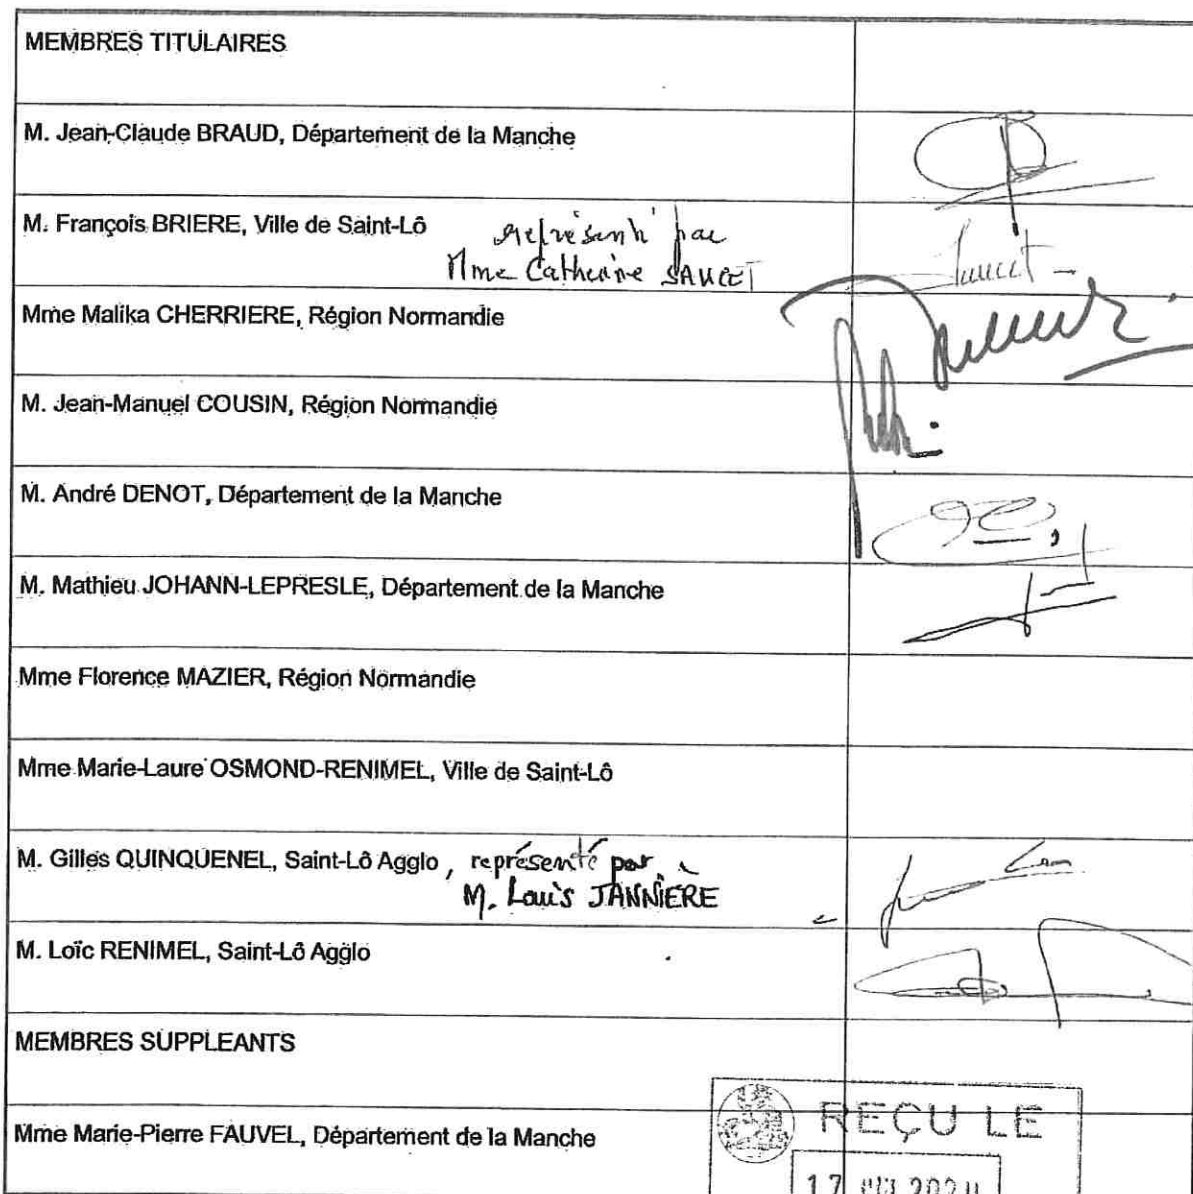 MEMBRES TITULAIRES
M. Jean-Claude BRAUD, Département de la Manche
M. François BRIERE, Ville de Saint-Lô représenté par
Mme Catherine SAUCET
Mme Malika CHERRIERE, Région Normandie
M. Jean-Manuel COUSIN, Région Normandie
M. André DENOT, Département de la Manche
M. Mathieu JOHANN-LEPRESLE, Département de la Manche
Mme Florence MAZIER, Région Normandie
Mme Marie-Laure OSMOND-RENIMEL, Ville de Saint-Lô
M. Gilles QUINQUENEL, Saint-Lô Agglo, représenté par
M. Louis JANNIÈRE
M. Loïc RENIMEL, Saint-Lô Agglo
MEMBRES SUPPLEANTS
REÇU LE
Mme Marie-Pierre FAUVEL, Département de la Manche
17